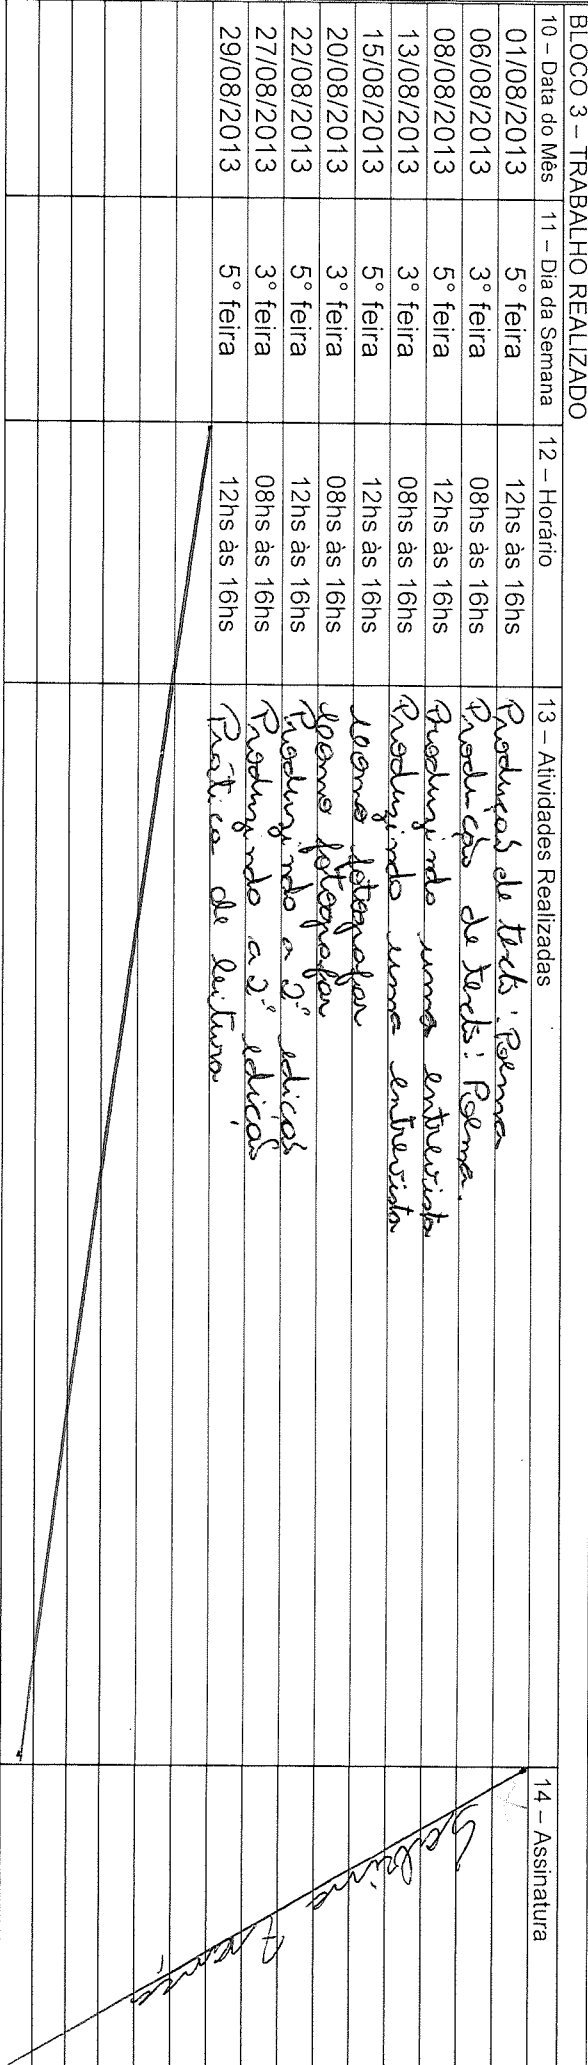 BLOCO 3 – TRABALHO REALIZADO
10 – Data do Mês 11 – Dia da Semana 12 – Horário 13 – Atividades Realizadas 14 – Assinatura
01/08/2013 5° feira 12hs às 16hs Produção de texto: Poema
06/08/2013 3° feira 08hs às 16hs Produção de texto: Poema.
08/08/2013 5° feira 12hs às 16hs Produzindo uma entrevista
13/08/2013 3° feira 08hs às 16hs Produzindo uma entrevista
15/08/2013 5° feira 12hs às 16hs Como fotografar
20/08/2013 3° feira 08hs às 16hs Como fotografar
22/08/2013 5° feira 12hs às 16hs Produzindo a 2° edição
27/08/2013 3° feira 08hs às 16hs Produzindo a 2° edição
29/08/2013 5° feira 12hs às 16hs Prática de leitura